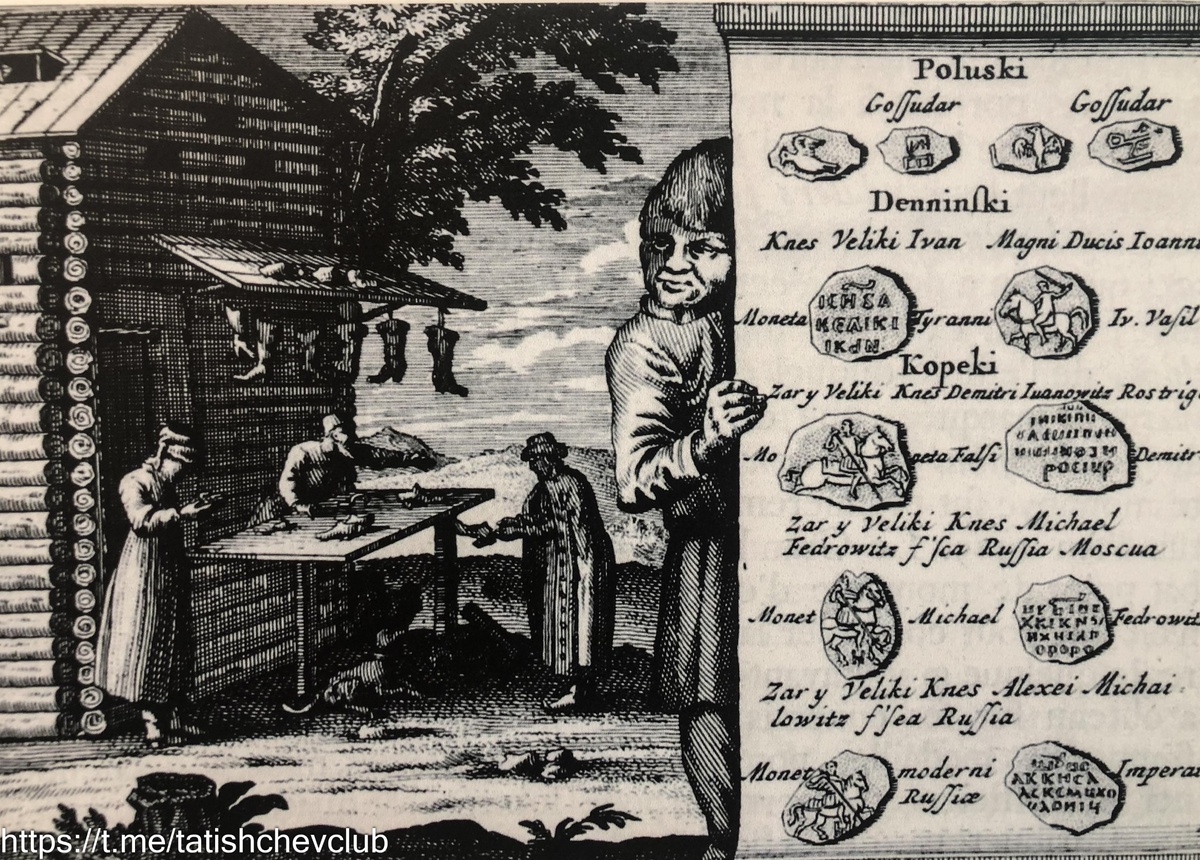 Poluski
Goſſudar Goſſudar
Denninſki
Knes Veliki Ivan Magni Ducis Ioanni
Moneta Tyranni Iv. Vaſil
Kopeki
Zar y Veliki Knes Demitri Iuanowitz Rostrig
Mo neta Falſi Demitr
Zar y Veliki Knes Michael
Fedrowitz f'ſca Ruſſia Moscua
Monet Michael Fedrowitz
Zar y Veliki Knes Alexei Michai-
lowitz f'ſea Ruſſia
Monet moderni Impera
Ruſſiæ
https://t.me/tatishchevclub